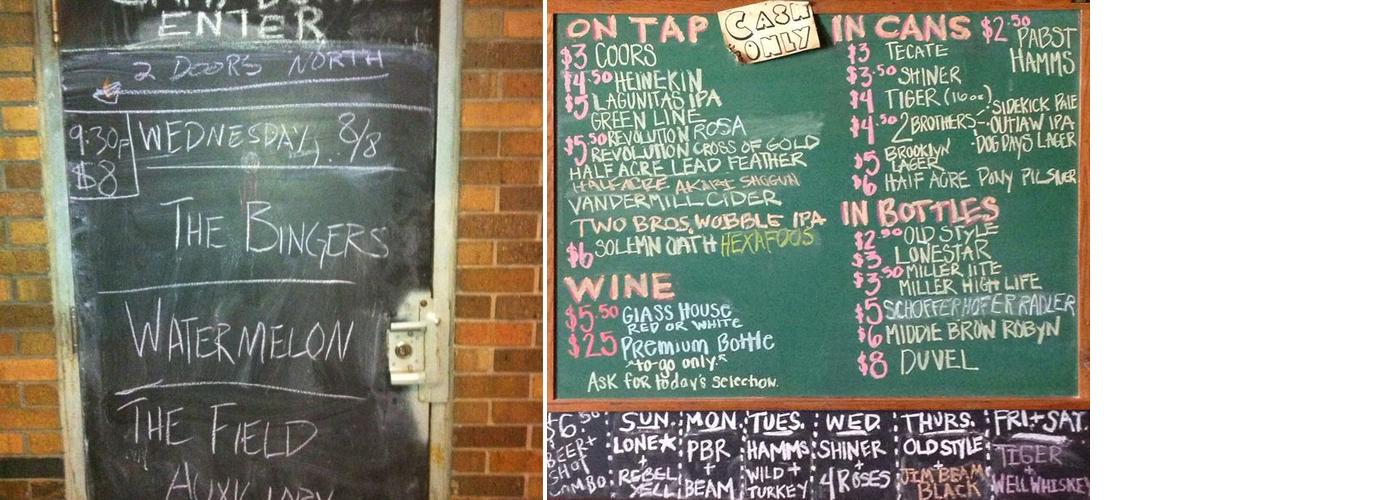 ENTER
2 DOORS NORTH
9:30P
$8
WEDNESDAY, 8/8
THE BINGERS
WATERMELON
THE FIELD
AUXILIARY
ON TAP
CASH
ONLY
$3 COORS
$4.50 HEINEKIN
$5 LAGUNITAS IPA
GREEN LINE
$5.50 REVOLUTION ROSA
REVOLUTION CROSS OF GOLD
HALF ACRE LEAD FEATHER
HALF ACRE AKARI SHOGUN
VANDERMILL CIDER
TWO BROS. WOBBLE IPA
$6 SOLEMN OATH HEXAFOOS
WINE
$5.50 GLASS HOUSE
RED OR WHITE
$25 Premium Bottle
"to-go only."
ASK for today's selection.
IN CANS
$2.50 PABST
HAMMS
$3 TECATE
$3.50 SHINER
$4 TIGER (16oz)
$4.50 2 BROTHERS-:SIDEKICK PALE
:OUTLAW IPA
:DOG DAYS LAGER
$5 BROOKLYN
LAGER
$6 HALF ACRE PONY PILSNER
IN BOTTLES
$2.50 OLD STYLE
$3 LONESTAR
$3.50 MILLER LITE
MILLER HIGH LIFE
$5 SCHOFFERHOFER RADLER
$6 MIDDLE BROW ROBYN
$8 DUVEL
$6.50
BEER+
SHOT
COMBO:
SUN.
LONE★
+
REBEL
YELL
MON.
PBR
+
BEAM
TUES.
HAMMS
+
WILD
TURKEY
WED.
SHINER
+
4 ROSES
THURS.
OLD STYLE
+
JIM BEAM
BLACK
FRI+SAT.
TIGER
+
WELL WHISKEY